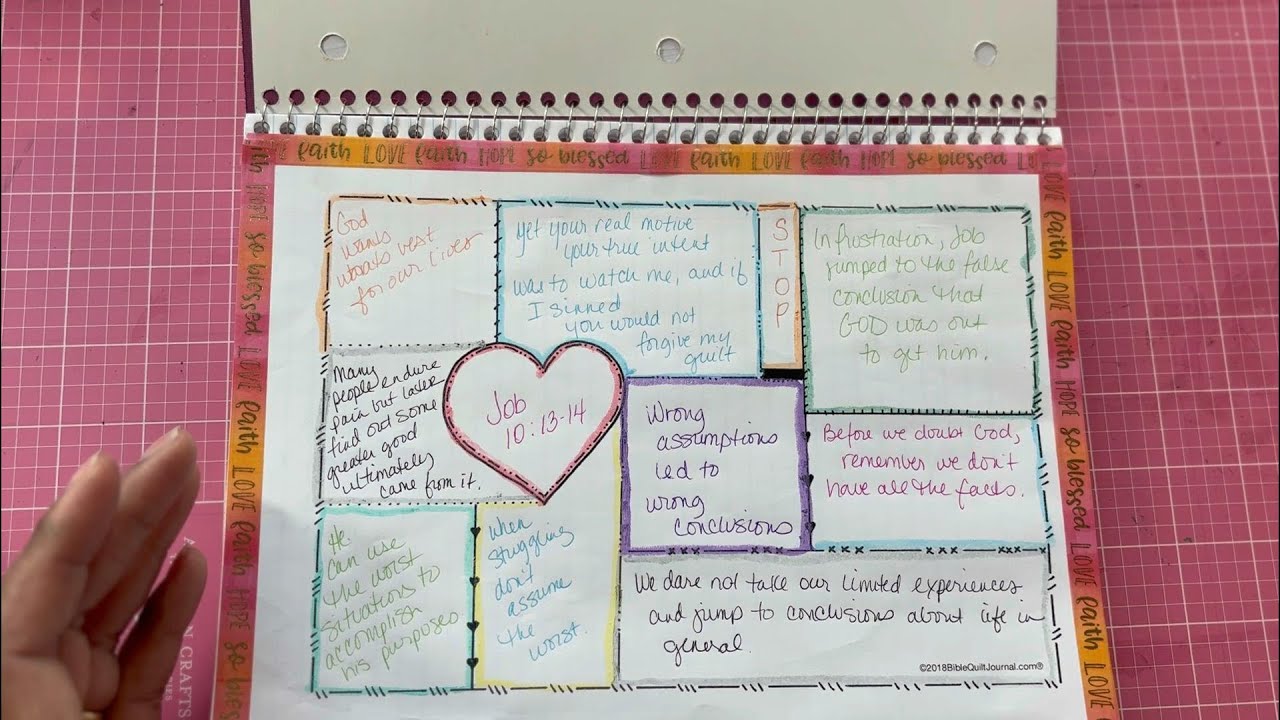 LOVE faith LOVE faith HOPE so blessed LOVE faith LOVE faith HOPE so blessed LO
HOPE so blessed LOVE faith LOVE faith HOPE so blessed
LOVE faith LOVE faith HOPE so blessed LOVE faith LOVE
God
wants
best
for our lives
yet your real motive
your true intent
was to watch me, and if
I sinned
you would not
forgive my
guilt
STOP
In frustration, Job
jumped to the false
conclusion that
GOD was out
to get him.
Many
people endure
pain out later
find out some
greater good
ultimately
came from it.
Job
10:13-14
Wrong
assumptions
led to
wrong
conclusions
Before we doubt God,
remember we don't
have all the facts.
He
can use
the worst
situations to
accomplish
his purposes
when
struggling
don't
assume
the worst.
We dare not take our limited experiences
and jump to conclusions about life in
general.
©2018BibleQuiltJournal.com®
N CRAFTS